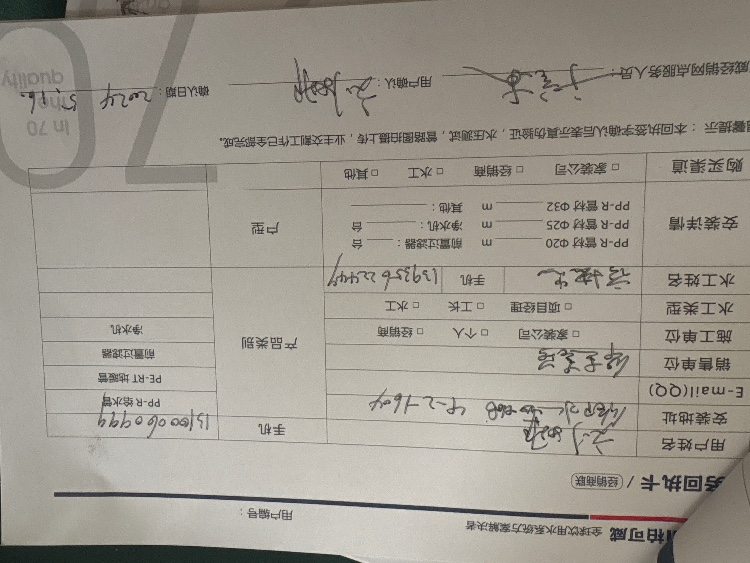 柏可威 全球饮用水系统方案解决者
用户编号：
务回执卡 / 经销商联
用户姓名
手机 13100060999
安装地址 4-2-1604
E-mail(QQ)
销售单位
施工单位 □ 家装公司 □ 个人 □ 经销商
水工类型 □ 项目经理 □ 工长 □ 水工
水工姓名 手机 13925622449
产品类别
PP-R 给水管
PE-RT 地暖管
前置过滤器
净水机
安装详情
PP-R 管材 Φ20 ______ m 前置过滤器：______ 台
PP-R 管材 Φ25 ______ m 净水机：______ 台
PP-R 管材 Φ32 ______ m 其他：______
户型
购买渠道 □ 家装公司 □ 经销商 □ 水工 □ 其他
馨提示：本回执签字确认后表示真伪验证，水压测试，管路图拍摄上传，业主交底工作已全部完成。
威经销网点服务人员：
用户确认：
确认日期：2024 5.16.
In 70
the
quality
70